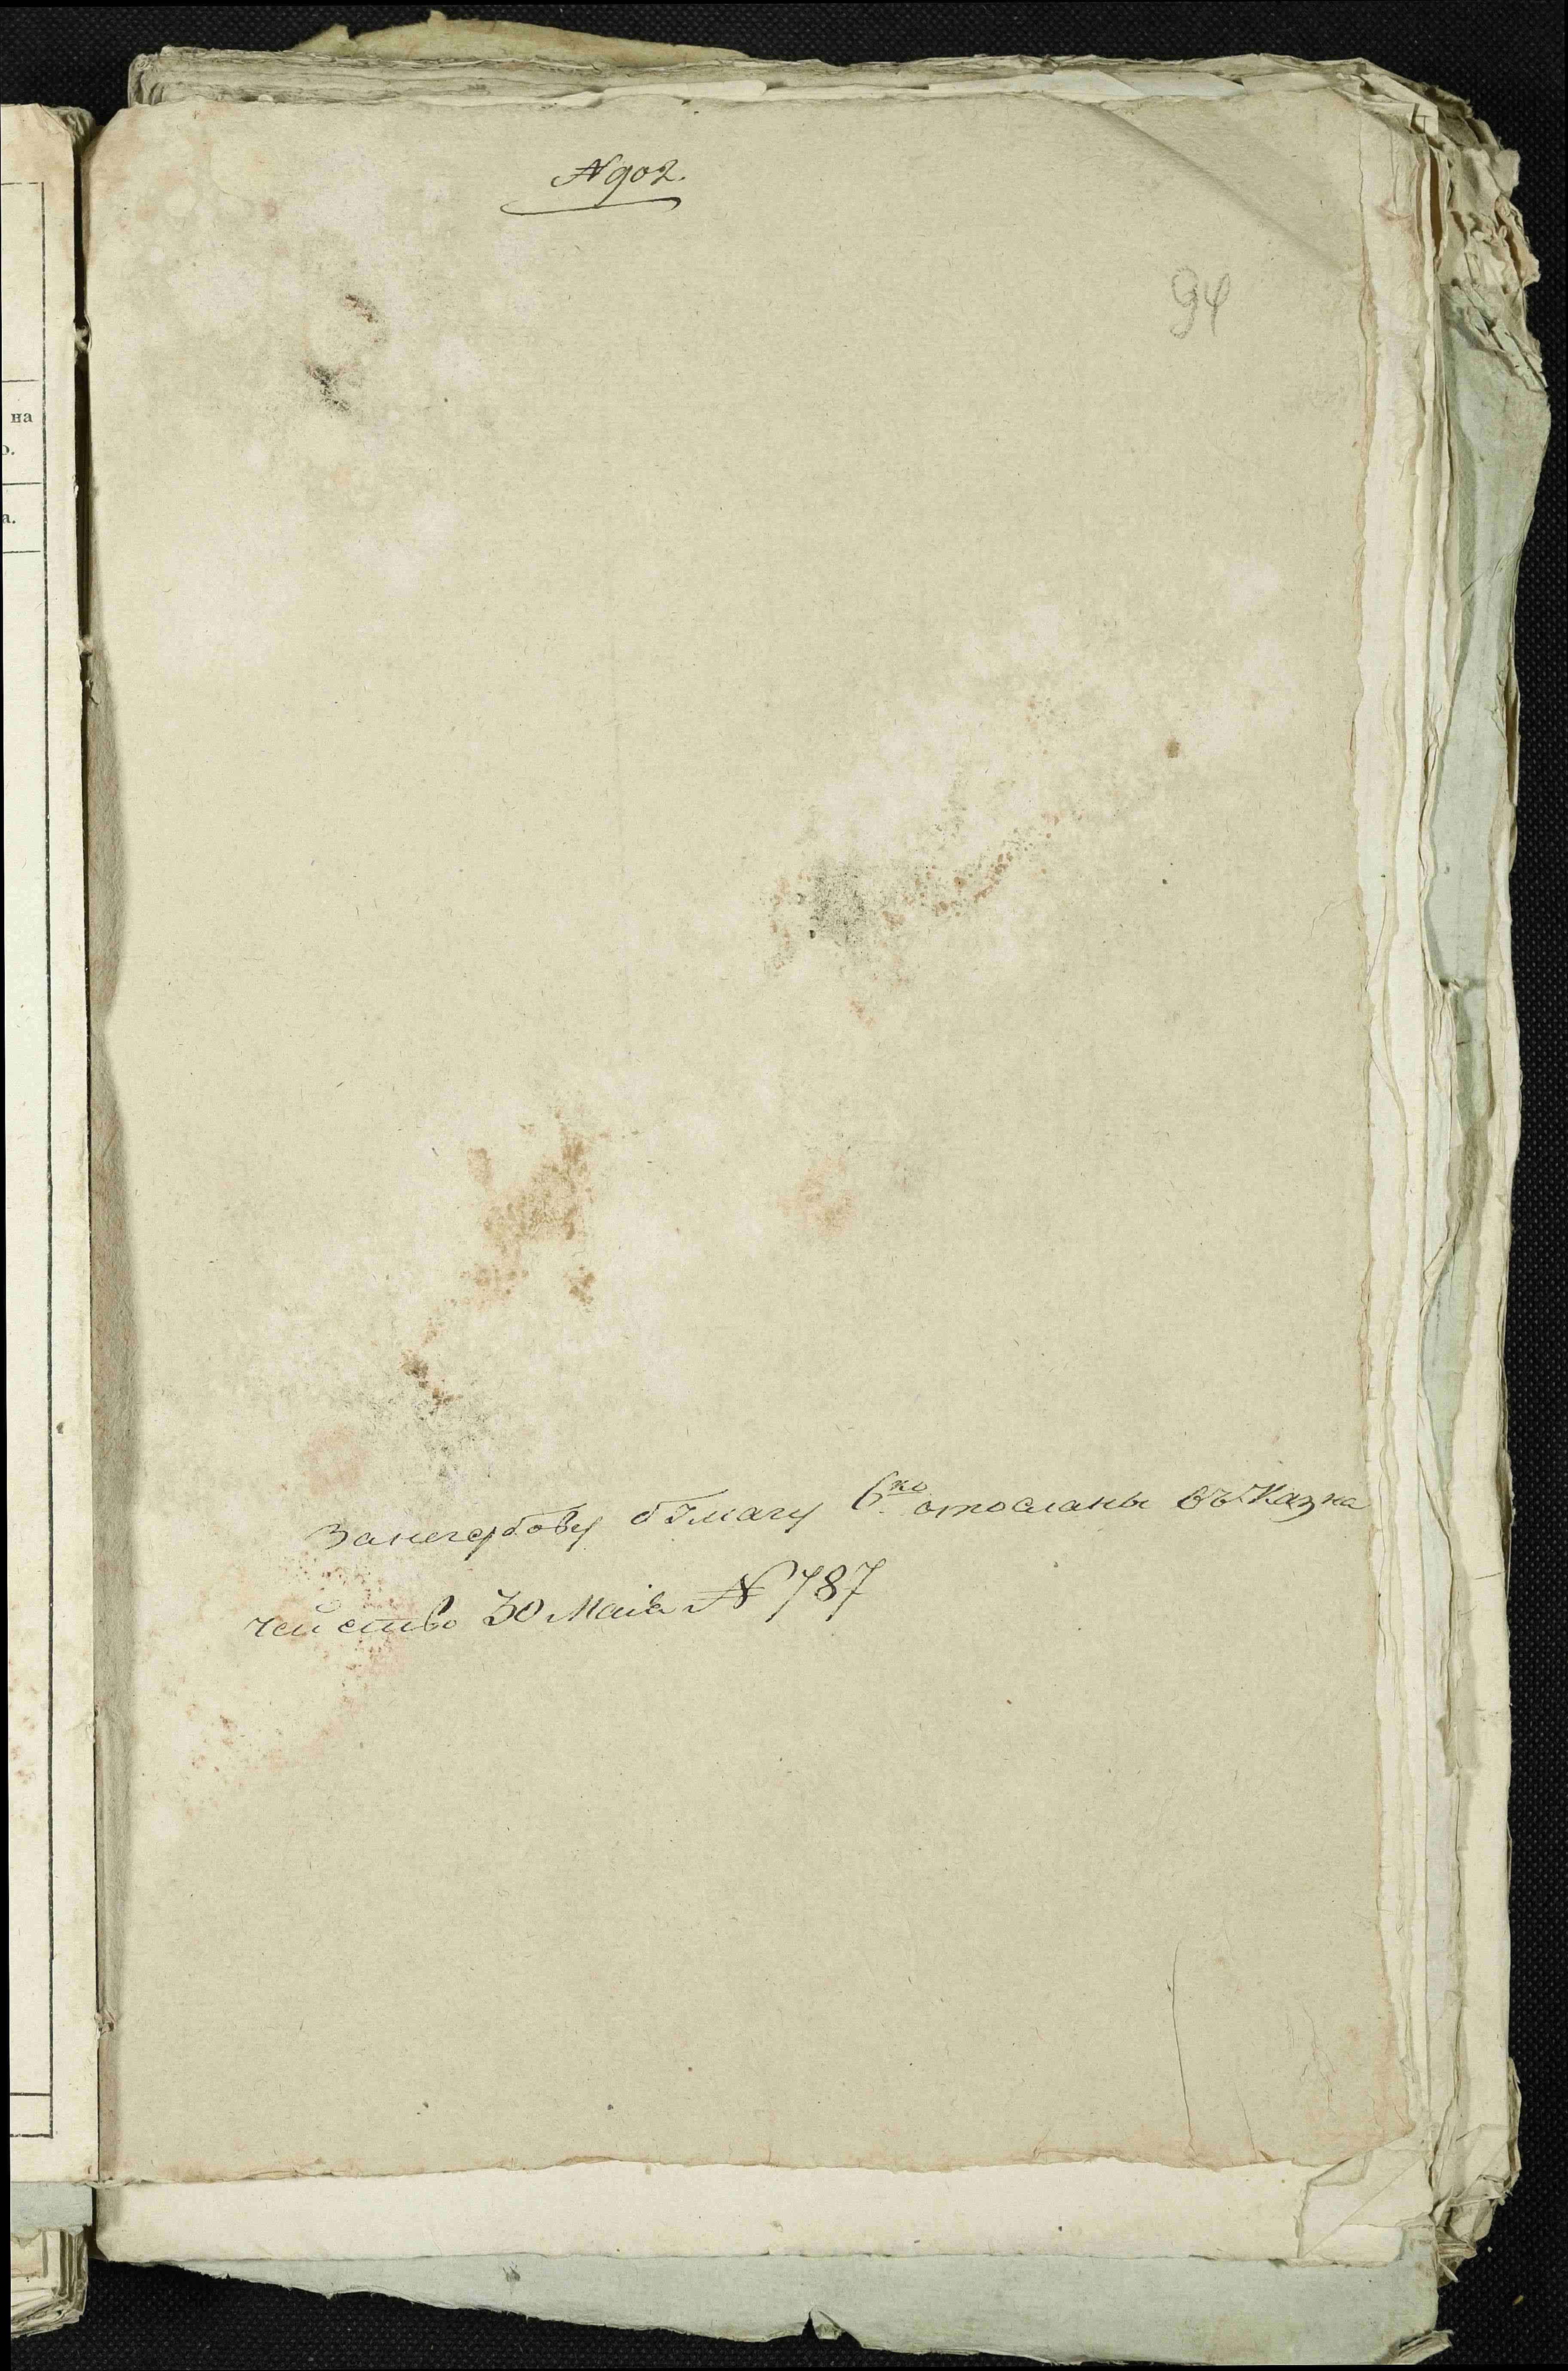 N 902.
94
на
о.
а.
За негербову бумагу 6 ко отосланы въ Казна
чейство 30 Маія N 787